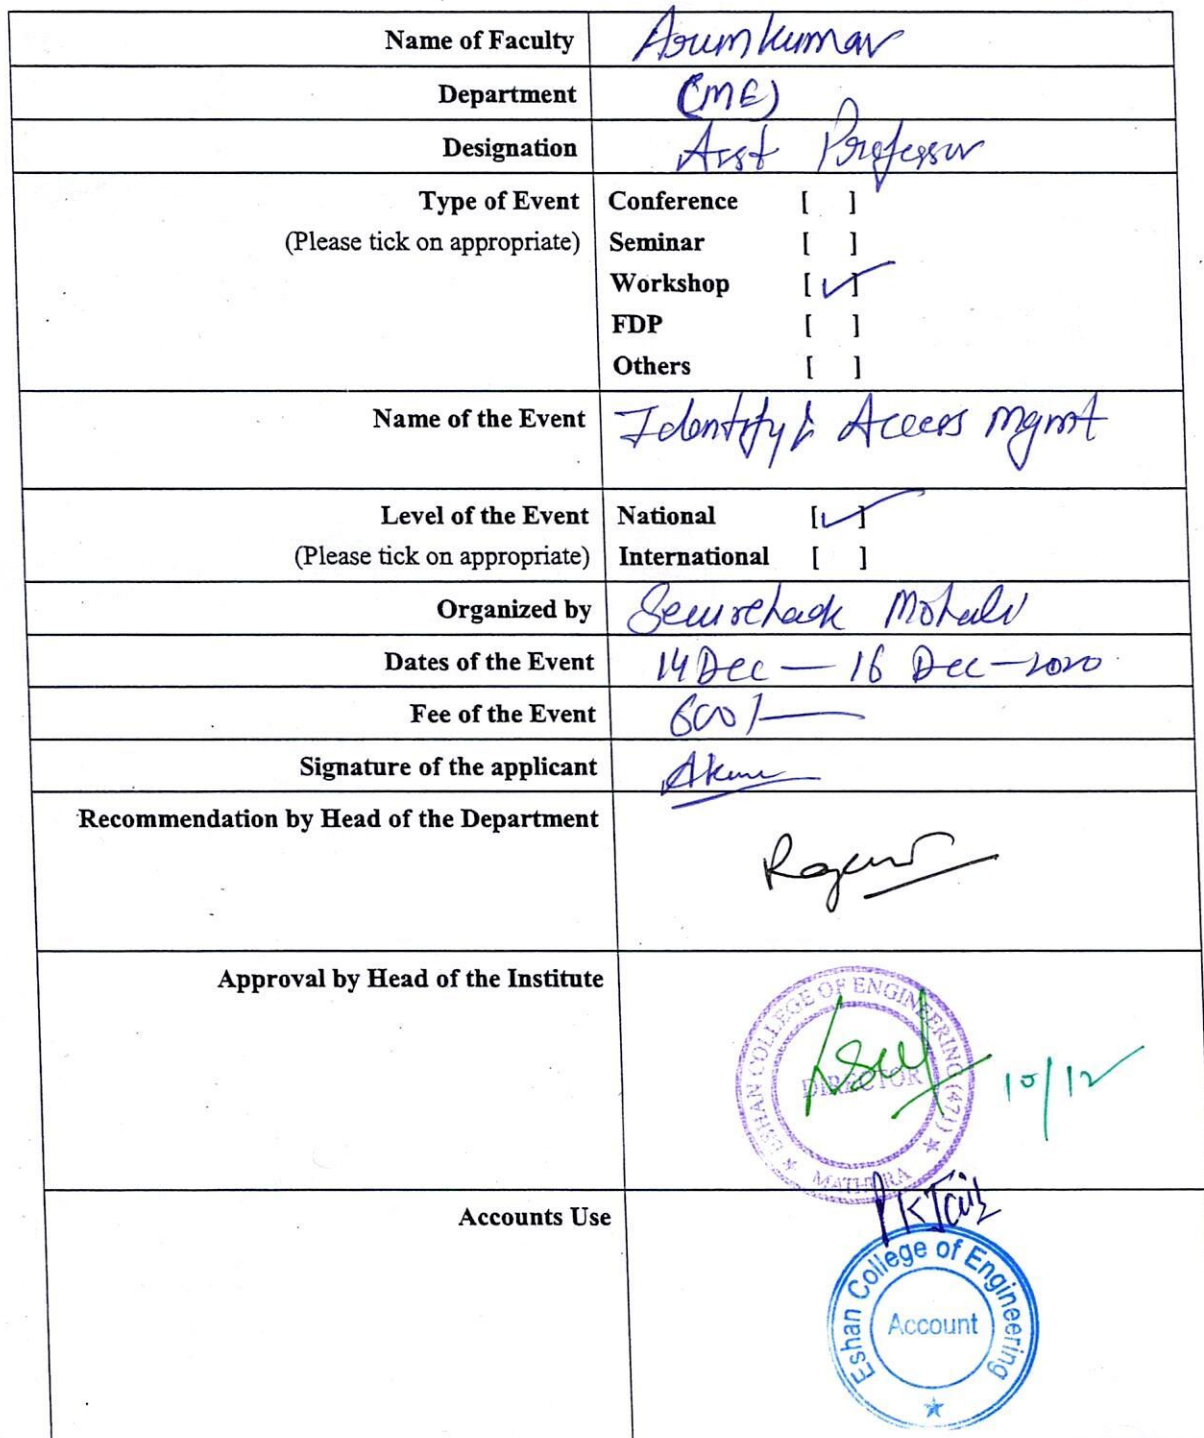 Name of Faculty Arun Kumar
Department (ME)
Designation Asst Professor
Type of Event Conference [ ]
(Please tick on appropriate) Seminar [ ]
Workshop [✓]
FDP [ ]
Others [ ]
Name of the Event Identity & Access Mgmt
Level of the Event National [✓]
(Please tick on appropriate) International [ ]
Organized by Securehack Mohali
Dates of the Event 14 Dec — 16 Dec - 2020
Fee of the Event 600/—
Signature of the applicant
Recommendation by Head of the Department
Approval by Head of the Institute
ESHAN COLLEGE OF ENGINEERING (471)
DIRECTOR
10/12
★ MATHURA ★
Accounts Use
PKJain
Eshan College of Engineering
Account
★